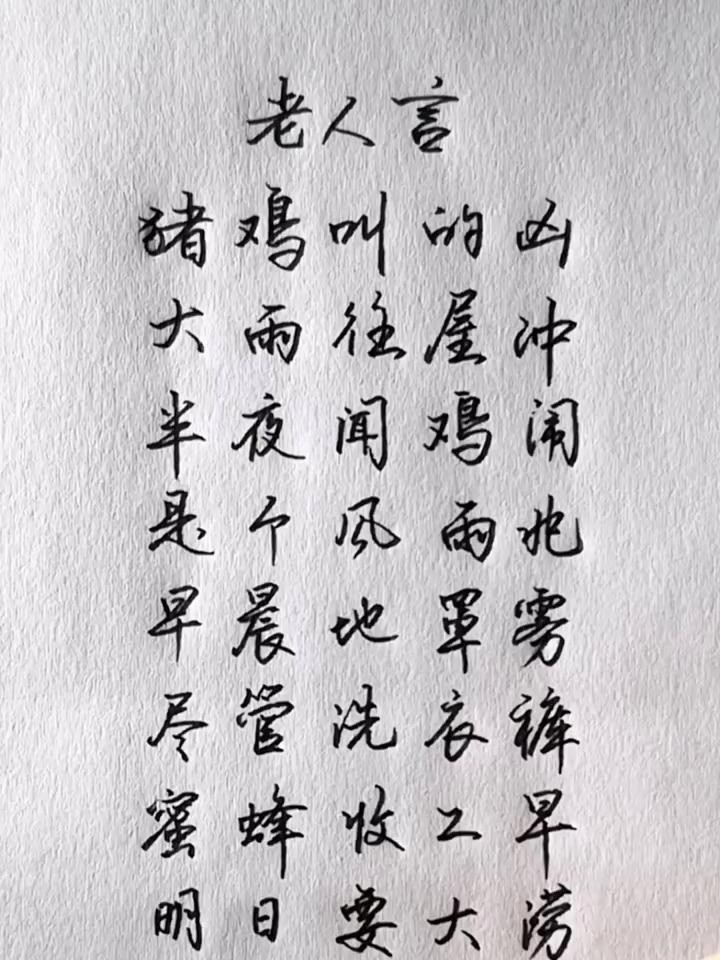 老人言
猪鸡叫的凶
大雨往屋冲
半夜闻鸡闹
是个风雨兆
早晨地罩雾
尽管洗衣裤
蜜蜂收工早
明日要大涝